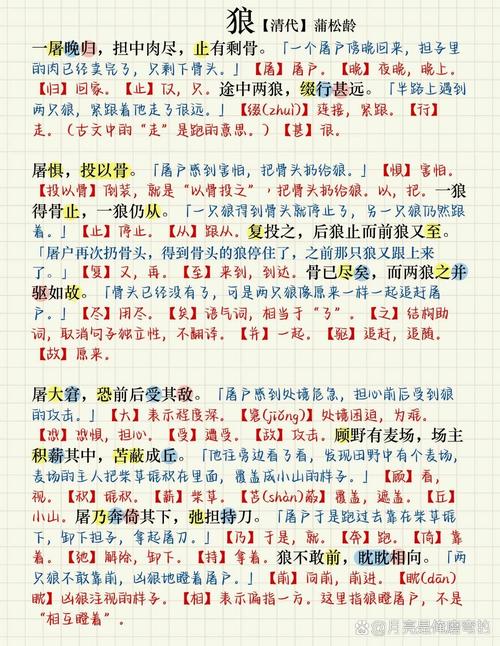 狼【清代】蒲松龄
一屠晚归，担中肉尽，止有剩骨。「一个屠户傍晚回来，担子里
的肉已经卖完了，只剩下骨头。」【屠】屠户。【晚】夜晚，晚上。
【归】回家。【止】仅，只。途中两狼，缀行甚远。「半路上遇到
两只狼，紧跟着他走了很远。」【缀(zhuì)】连接，紧跟。【行】
走。（古文中的“走”是跑的意思。）【甚】很。
屠惧，投以骨。「屠户感到害怕，把骨头扔给狼。」【惧】害怕。
【投以骨】倒装，就是“以骨投之”，把骨头扔给狼。以，把。一狼
得骨止，一狼仍从。「一只狼得到骨头就停止了，另一只狼仍然跟
着。」【止】停止。【从】跟从。复投之，后狼止而前狼又至。
「屠户再次扔骨头，得到骨头的狼停住了，之前那只狼又跟上来
了。」【复】又，再。【至】来到，到达。骨已尽矣，而两狼之并
驱如故。「骨头已经没有了，可是两只狼像原来一样一起追赶屠
户。」【尽】用尽。【矣】语气词，相当于“了”。【之】结构助
词，取消句子独立性，不翻译。【并】一起。【驱】追赶，追随。
【故】原来。
屠大窘，恐前后受其敌。「屠户感到处境危急，担心前后受到狼
的攻击。」【大】表示程度深。【窘(jiǒng)】处境困迫，为难。
【恐】恐惧，担心。【受】遭受。【敌】攻击。顾野有麦场，场主
积薪其中，苫蔽成丘。「他往旁边看了看，发现田野中有个麦场，
麦场的主人把柴草堆积在里面，覆盖成小山的样子。」【顾】看，
视。【积】堆积。【薪】柴草。【苫(shàn)蔽】覆盖，遮盖。【丘】
小山。屠乃奔倚其下，弛担持刀。「屠户于是跑过去靠在柴草堆
下，卸下担子，拿起屠刀。」【乃】于是，就。【奔】跑。【倚】靠
着。【弛】解除，卸下。【持】拿着。狼不敢前，眈眈相向。「两
只狼不敢靠前，凶狠地瞪着屠户。」【前】向前，前进。【眈(dān)
眈】凶狠注视的样子。【相】表示偏指一方。这里指狼瞪屠户，不是
“相互瞪着”。